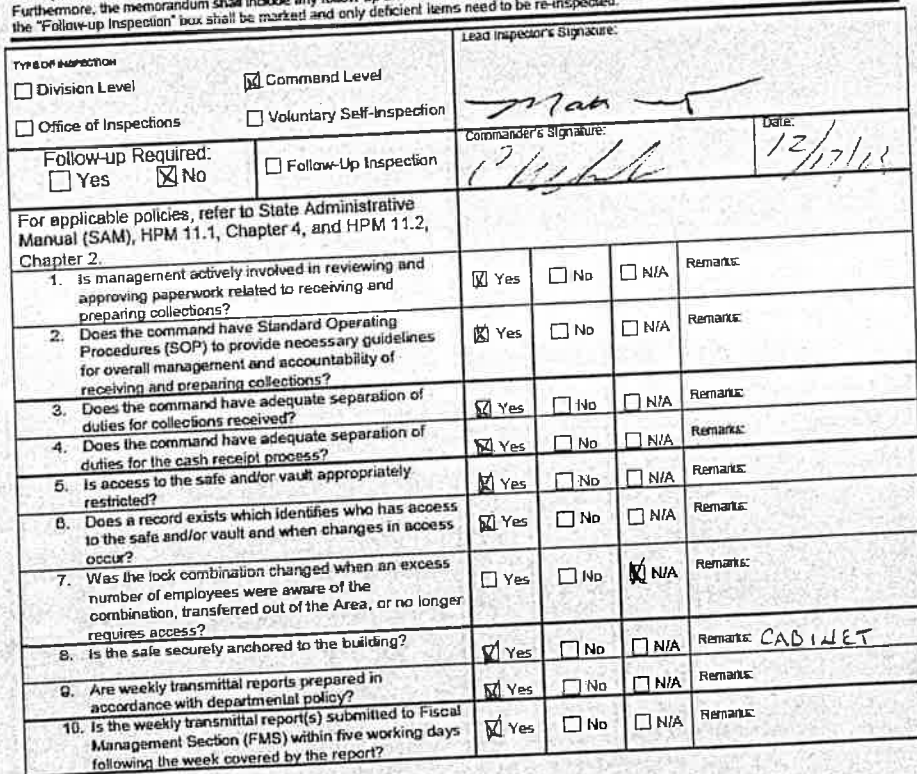 Furthermore, the memorandum shall include any follow-up
the "Follow-up Inspection" box shall be marked and only deficient items need to be re-inspected.
TYPE OF INSPECTION
Division Level
Command Level
Office of Inspections
Voluntary Self-Inspection
Lead Inspector's Signature:
Follow-up Required:
Yes
No
Follow-Up Inspection
Commander's Signature:
Date:
For applicable policies, refer to State Administrative
Manual (SAM), HPM 11.1, Chapter 4, and HPM 11.2,
Chapter 2.
1. Is management actively involved in reviewing and
approving paperwork related to receiving and
preparing collections?
Yes No N/A Remarks:
2. Does the command have Standard Operating
Procedures (SOP) to provide necessary guidelines
for overall management and accountability of
receiving and preparing collections?
Yes No N/A Remarks:
3. Does the command have adequate separation of
duties for collections received?
Yes No N/A Remarks:
4. Does the command have adequate separation of
duties for the cash receipt process?
Yes No N/A Remarks:
5. Is access to the safe and/or vault appropriately
restricted?
Yes No N/A Remarks:
6. Does a record exists which identifies who has access
to the safe and/or vault and when changes in access
occur?
Yes No N/A Remarks:
7. Was the lock combination changed when an excess
number of employees were aware of the
combination, transferred out of the Area, or no longer
requires access?
Yes No N/A Remarks:
8. Is the safe securely anchored to the building?
Yes No N/A Remarks: CABINET
9. Are weekly transmittal reports prepared in
accordance with departmental policy?
Yes No N/A Remarks:
10. Is the weekly transmittal report(s) submitted to Fiscal
Management Section (FMS) within five working days
following the week covered by the report?
Yes No N/A Remarks: